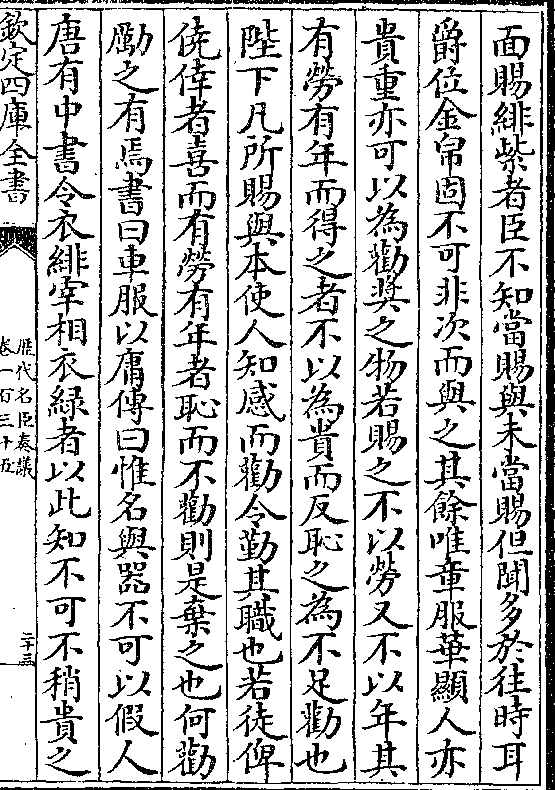 面賜緋紫者臣不知當賜與未當賜但聞多於往時耳
爵位金帛固不可非次而與之其餘唯章服華顯人亦
貴重亦可以為勸奬之物若賜之不以勞又不以年其
有勞有年而得之者不以為貴而反恥之為不足勸也
陛下凡所賜與本使人知感而勸令勤其職也若徒俾
僥倖者喜而有勞有年者恥而不勸則是棄之也何勸
勵之有焉書曰車服以庸傳曰惟名與器不可以假人
唐有中書令衣緋宰相衣緑者以此知不可不稍貴之
欽定四庫全書
歴代名臣奏議
卷一百三十五
二十五